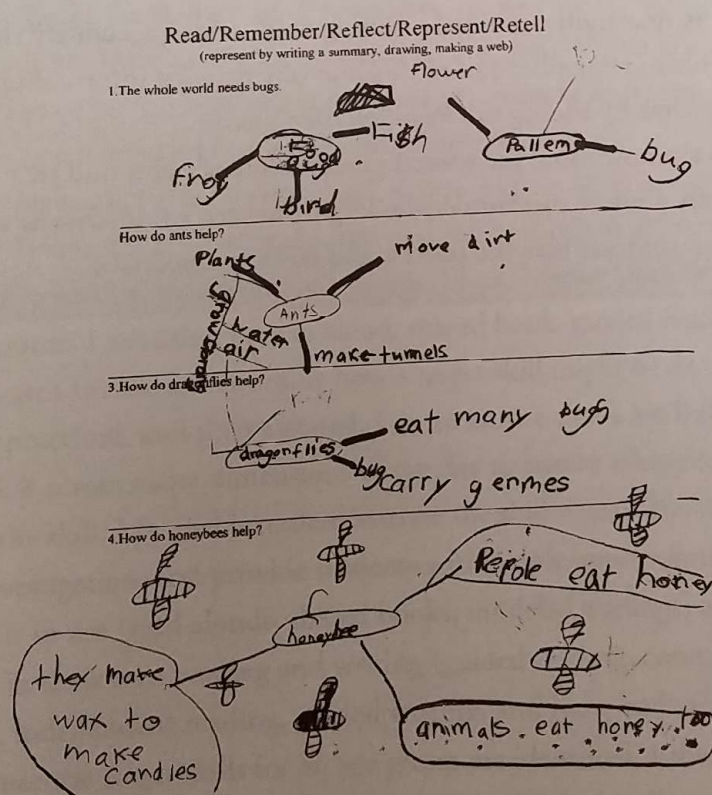 Read/Remember/Reflect/Represent/Retell
(represent by writing a summary, drawing, making a web)
1.The whole world needs bugs.
Flower
Fish
Pallem
bug
Frog
bird
How do ants help?
Plants
move dirt
Ants
grow
water
air
make tunnels
3.How do dragonflies help?
eat many bugs
dragonflies
bug
carry germes
4.How do honeybees help?
Pepole eat honey
honeybee
they make
wax to
make
candles
animals. eat honey. too